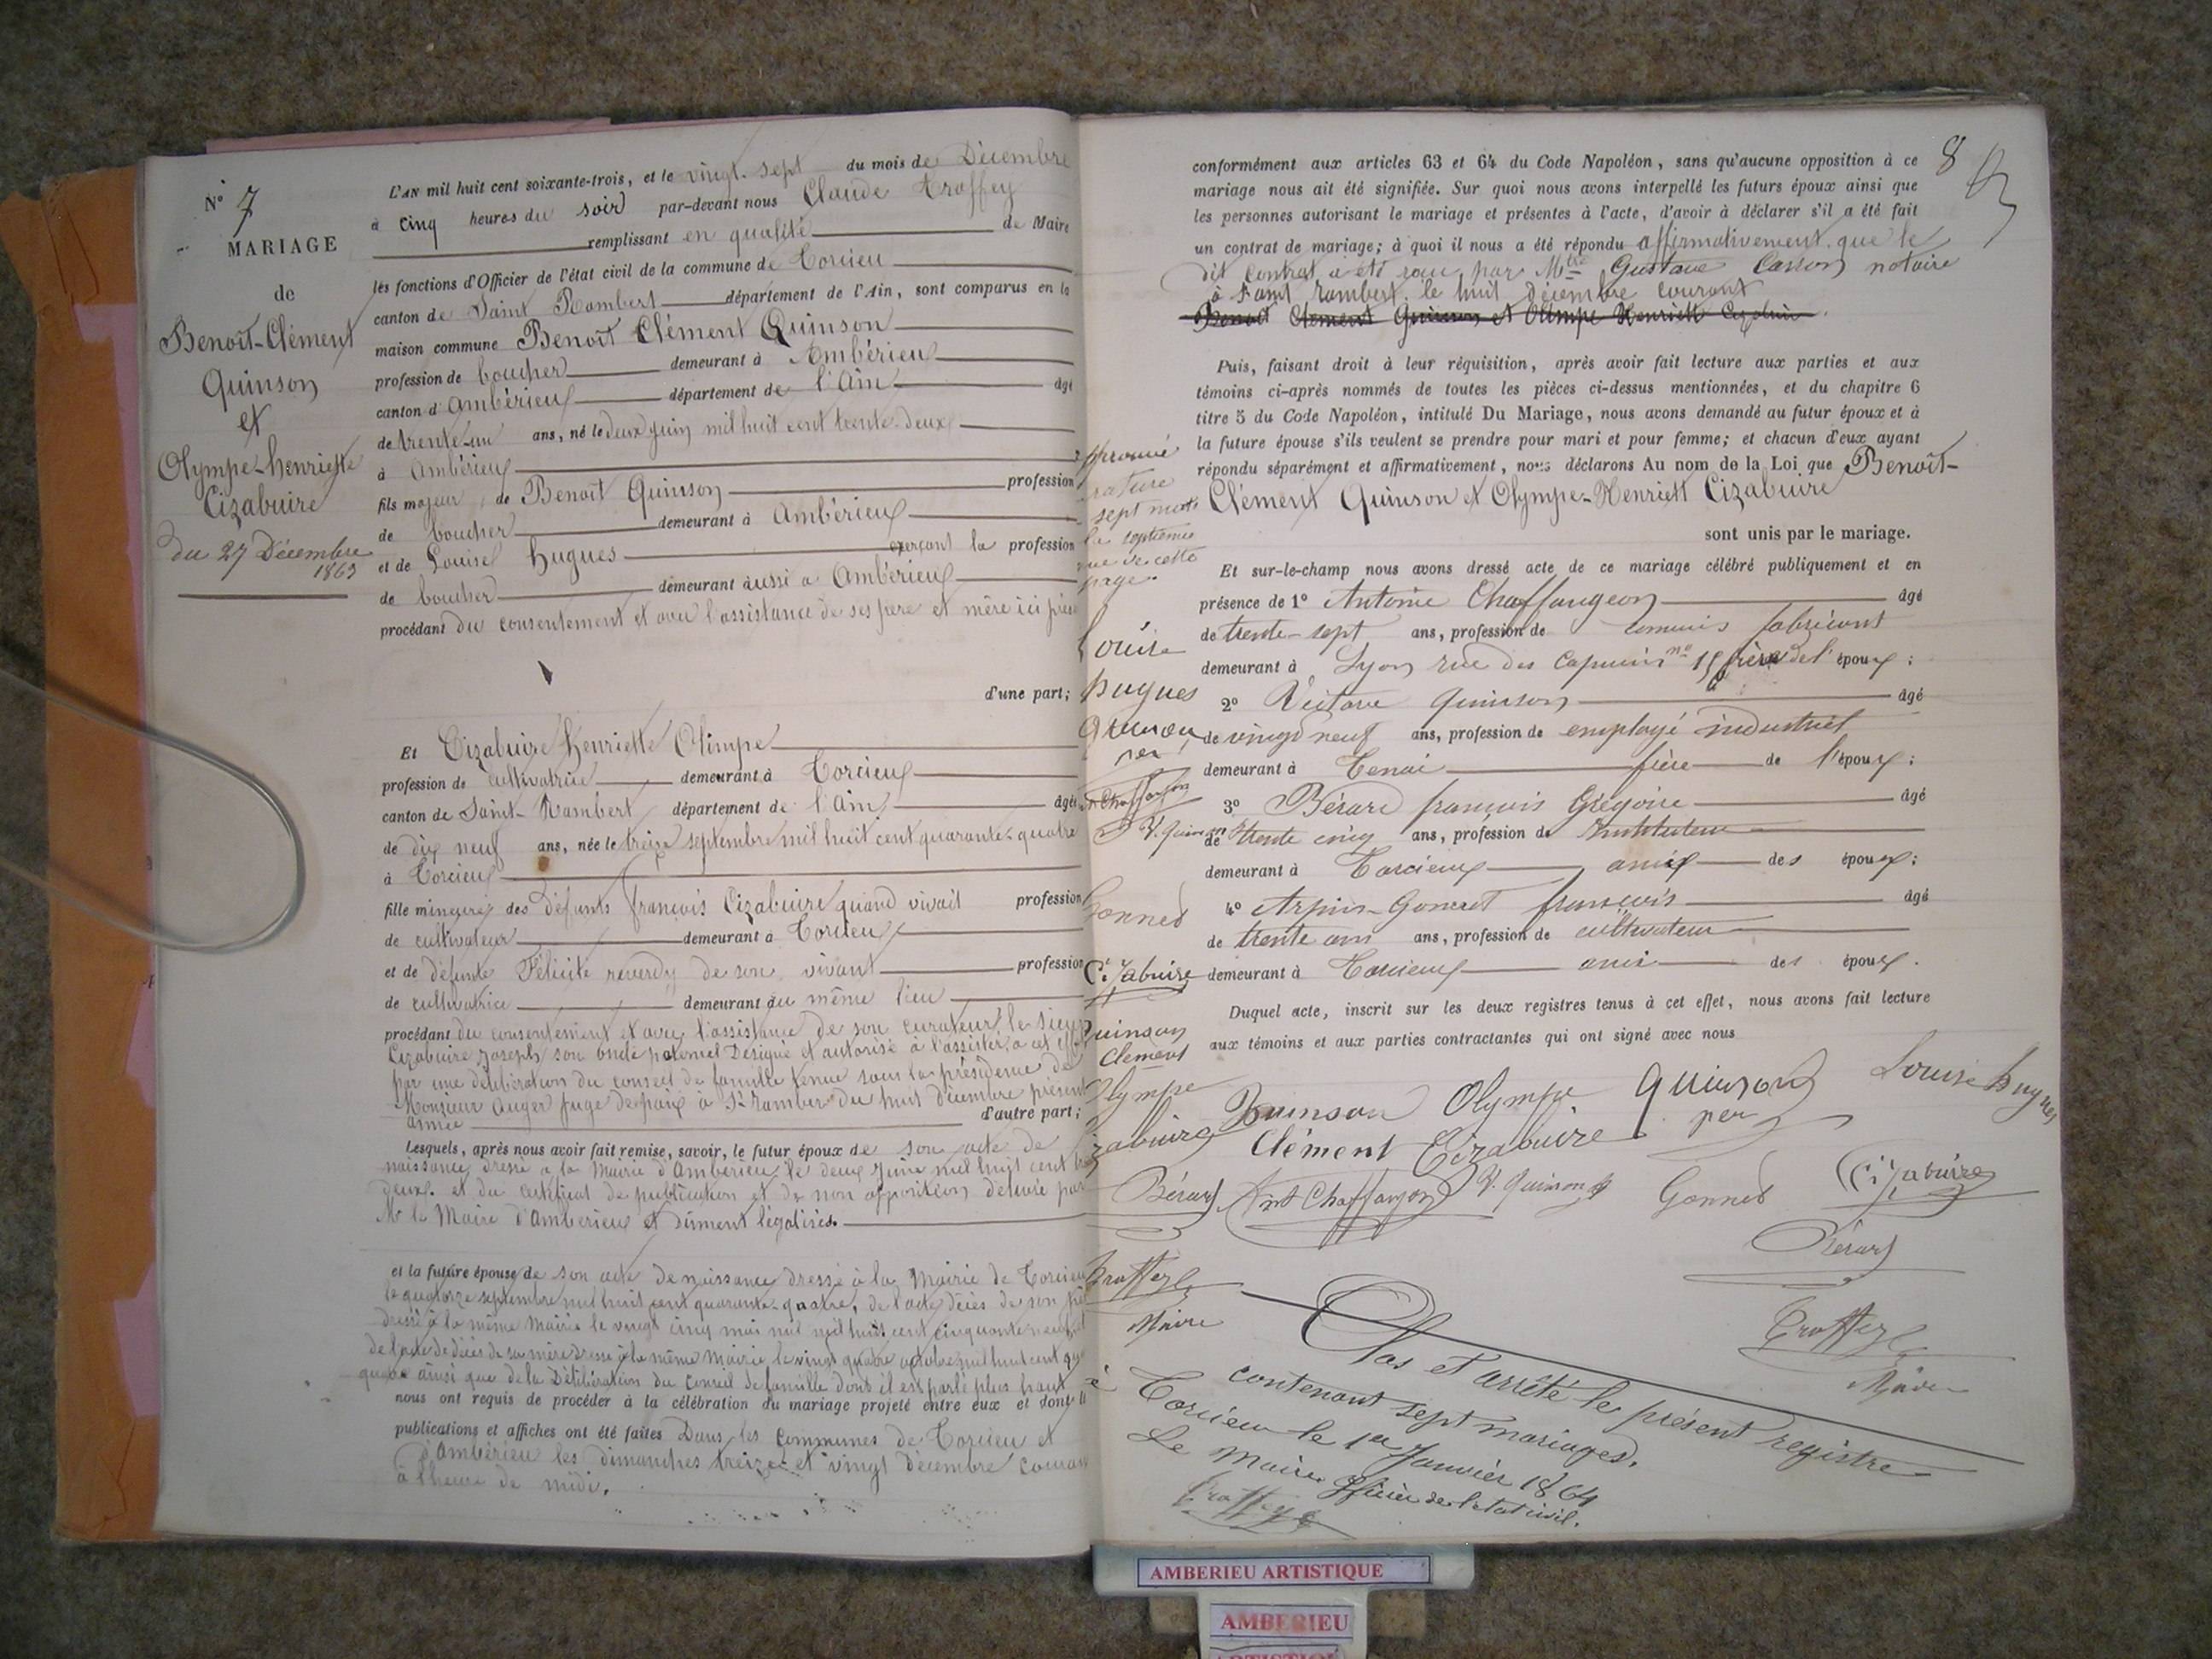 N° 7
MARIAGE
de
Benoît-Clément
Quinson
et
Olympe-henriette
Cizabuire
du 27 Décembre
1863
L'AN mil huit cent soixante-trois, et le vingt-sept du mois de Décembre
à cinq heures du soir par-devant nous Claude Troffey
remplissant en qualité de Maire
les fonctions d'Officier de l'état civil de la commune de Torcieu
canton de Saint Rambert département de l'Ain, sont comparus en la
maison commune Benoît Clément Quinson
profession de boucher demeurant à Ambérieux
canton d'ambérieux département de l'Ain âgé
de trente-un ans, né le deux juin mil huit cent trente-deux
à Ambérieux
fils majeur de Benoît Quinson profession
de boucher demeurant à Ambérieux
et de Louise hugues exerçant la profession
de boucher demeurant aussi a Ambérieux
procédant du consentement et avec l'assistance de ses père et mère ici
d'une part;
Et Cizabuire henriette Olimpe
profession de cultivatrice demeurant à Torcieux
canton de Saint-Rambert département de l'Ain âgée
de dix neuf ans, née le treize septembre mil huit cent quarante-quatre
à Torcieux
fille mineure des défunts françois Cizabuire quand vivait profession
de cultivateur demeurant à Torcieux
et de défunte Félicité reverdy de son vivant profession
de cultivatrice demeurant au même lieu
procédant du consentement et avec l'assistance de son curateur le sieur
Cizabuire Joseph son oncle paternel Désigné et autorisé à l'assister à cet effet
par une délibération du conseil de famille tenue sous la présidence de
Monsieur Auger Juge de paix à St-rambert du huit décembre présent
année d'autre part;
Lesquels, après nous avoir fait remise, savoir, le futur époux de son acte de
naissance dressé a la Mairie d'Ambérieu le deux Juin mil huit cent
deux. et du certificat de publication et de non opposition délivré par
Mr le Maire d'Amberieux et dûment légalisés.
et la future épouse de son acte de naissance dressé à la Mairie de Torcieu
le quatorze septembre mil huit cent quarante-quatre, de l'acte décès de son
dressé à la même Mairie le vingt cinq mai mil huit cent cinquante neuf
de l'acte de décès de sa mère dressé à la même Mairie le vingt quatre octobre mil huit cent
ainsi que de la Délibération du Conseil de famille dont il est parlé plus haut
nous ont requis de procéder à la célébration du mariage projeté entre eux et dont
publications et affiches ont été faites Dans les Communes de Torcieu et
d'Ambérieu les dimanches treize et vingt décembre
à l'heure de midi.
8
conformément aux articles 63 et 64 du Code Napoléon, sans qu'aucune opposition à ce
mariage nous ait été signifiée. Sur quoi nous avons interpellé les futurs époux ainsi que
les personnes autorisant le mariage et présentes à l'acte, d'avoir à déclarer s'il a été fait
un contrat de mariage; à quoi il nous a été répondu affirmativement que le
dit contrat a été reçu par Mtre Gustave Casson notaire
à Saint rambert le huit décembre courant
Benoit Clément Quinson et Olimpe Henriett
Puis, faisant droit à leur réquisition, après avoir fait lecture aux parties et aux
témoins ci-après nommés de toutes les pièces ci-dessus mentionnées, et du chapitre 6
titre 5 du Code Napoléon, intitulé Du Mariage, nous avons demandé au futur époux et à
la future épouse s'ils veulent se prendre pour mari et pour femme; et chacun d'eux ayant
répondu séparément et affirmativement, nous déclarons Au nom de la Loi que Benoît-
Clément Quinson et Olympe-Henriett Cizabuire
sont unis par le mariage.
Et sur-le-champ nous avons dressé acte de ce mariage célébré publiquement et en
présence de 1° Antoine Chaffangeon âgé
de trente-sept ans, profession de commis fabricant
demeurant à Lyon rue des Capucins no 15 de l'époux;
2° Victore Quinson âgé
de vingt neuf ans, profession de employé industriel
demeurant à Tenai frère de l'époux;
3° Bérard françois Grégoire âgé
de trente cinq ans, profession de Instituteur
demeurant à Torcieux ami des époux;
4° Arpin-Gonnet françois âgé
de trente ans ans, profession de cultivateur
demeurant à Torcieux ami des époux.
Duquel acte, inscrit sur les deux registres tenus à cet effet, nous avons fait lecture
aux témoins et aux parties contractantes qui ont signé avec nous
approuvé
rature
sept mots
la septième
de cette
page.
Louise
hugues
Quinson
per
Chaffangeon
V. Quinson
Gonned
Cizabuire
Quinson
Clément
Olympe
Cizabuire
Bérard
Troffey
Maire
Quinson Olympe Quinson Louise hugues
Clément Cizabuire per
Ant Chaffangeon V. Quinson Gonned Cizabuire
Bérard
Troffey
Maire
Clos et arrêté le présent registre
contenant sept mariages.
à Torcieu le 1er Janvier 1864
Le Maire officier de l'état civil.
Troffey
AMBERIEU ARTISTIQUE
AMBERIEU
ARTISTIQUE